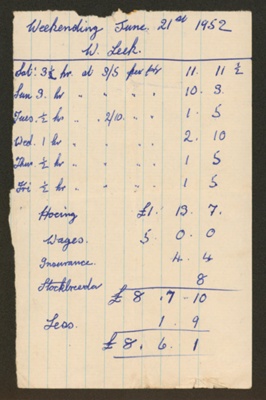 Weekending June. 21st 1952
W. Leek.
Sat. 3½ hr. at 3/5 per hr 11. 11 ½
Sun 3. hr " " " " 10. 3.
Tues. ½ hr " 2/10 " " 1. 5
Wed. 1 hr " " " " 2. 10
Thu ½ hr " " " " 1 5
Fri ½ hr " " " " 1 5
Hoeing £1. 13. 7.
Wages. 5. 0. 0
Insurance. 4. 4
Stockbreeder 8
£ 8. 7 - 10
Less. 1. 9
£ 8. 6. 1